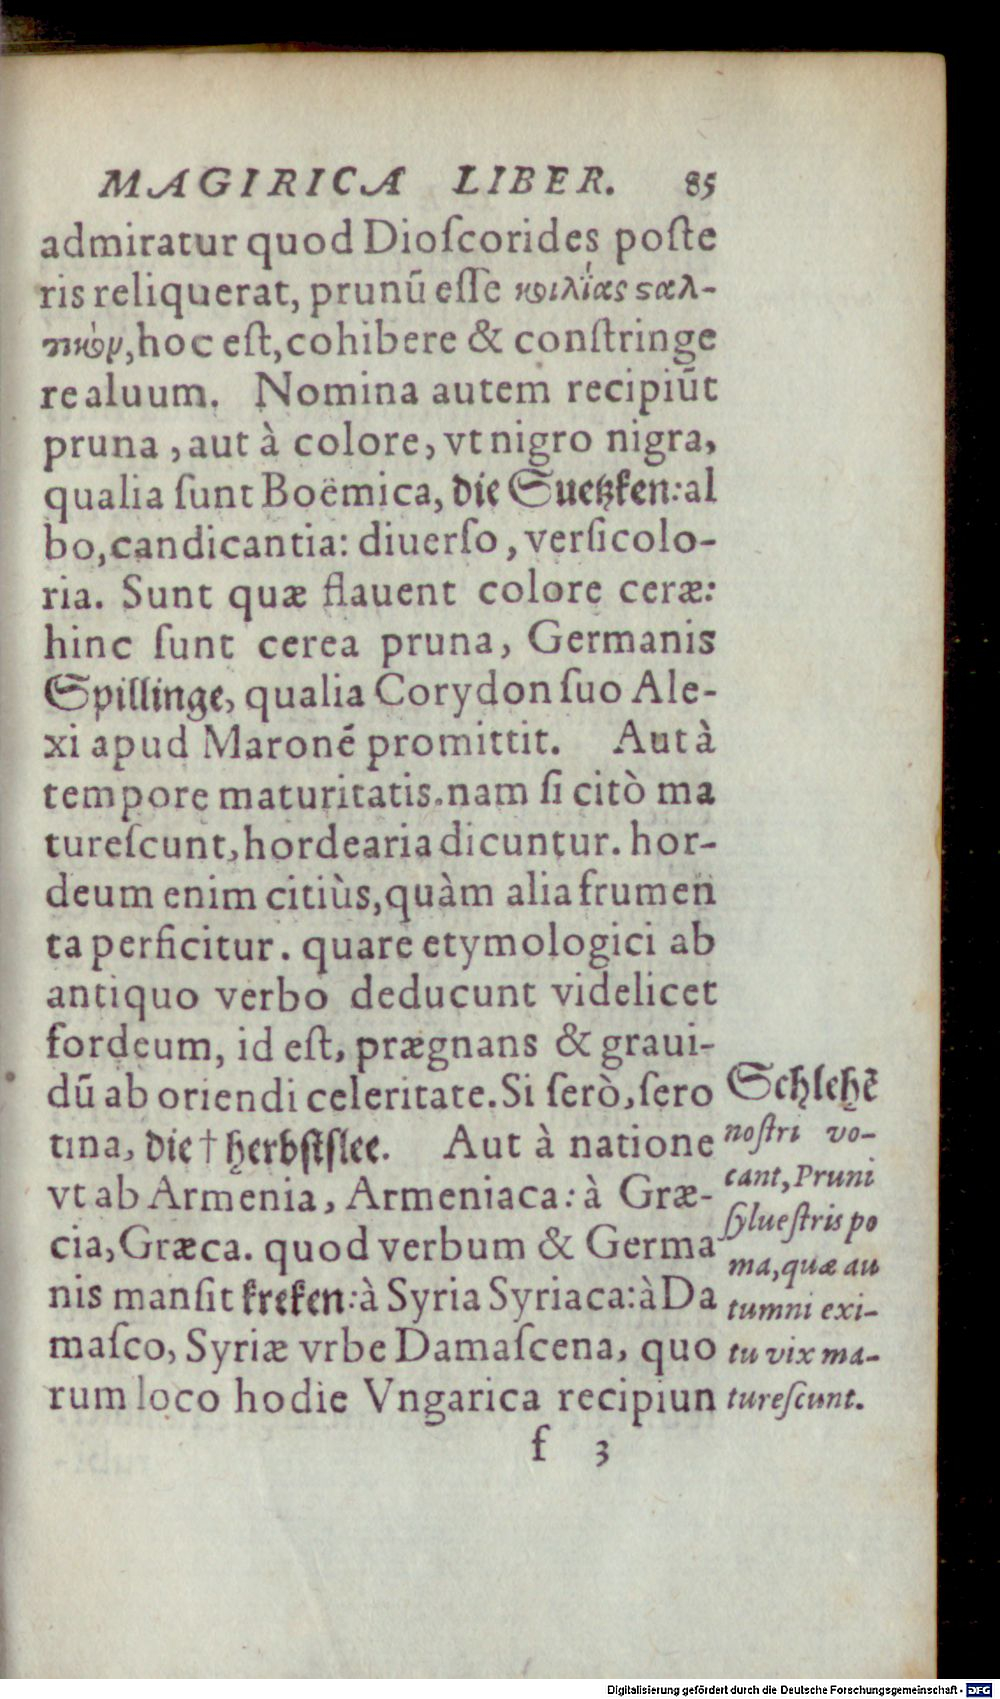 MAGIRICA LIBER. 85
admiratur quod Dioſcorides poſte
ris reliquerat, prunū eſſe κοιλίας ςαλ-
τικὸν, hoc eſt, cohibere & conſtringe
re aluum. Nomina autem recipiūt
pruna, aut à colore, vt nigro nigra,
qualia ſunt Boëmica, die Suetzken: al
bo, candicantia: diuerſo, verſicolo-
ria. Sunt quæ flauent colore ceræ:
hinc ſunt cerea pruna, Germanis
Spillinge, qualia Corydon ſuo Ale-
xi apud Maronē promittit. Aut à
tempore maturitatis. nam ſi citò ma
tureſcunt, hordearia dicuntur. hor-
deum enim citiùs, quàm alia frumen
ta perficitur. quare etymologici ab
antiquo verbo deducunt videlicet
fordeum, id eſt, prægnans & graui-
dū ab oriendi celeritate. Si ſerò, ſero
tina, die † herbſtſlee. Aut à natione
vt ab Armenia, Armeniaca: à Græ-
cia, Græca. quod verbum & Germa
nis manſit kreken: à Syria Syriaca: à Da
maſco, Syriæ vrbe Damaſcena, quo
rum loco hodie Vngarica recipiun
f 3
Schlehē
noſtri vo-
cant, Pruni
ſylueſtris po
ma, quæ au
tumni exi-
tu vix ma-
tureſcunt.
Digitalisierung gefördert durch die Deutsche Forschungsgemeinschaft - DFG